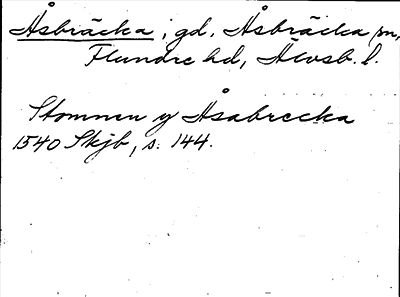 Åsbräcka, gd, Åsbräcka sn,
Flundre hd, Älvsb. l.
Stommen y Åsabrecka
1540 Skjb, s. 144.